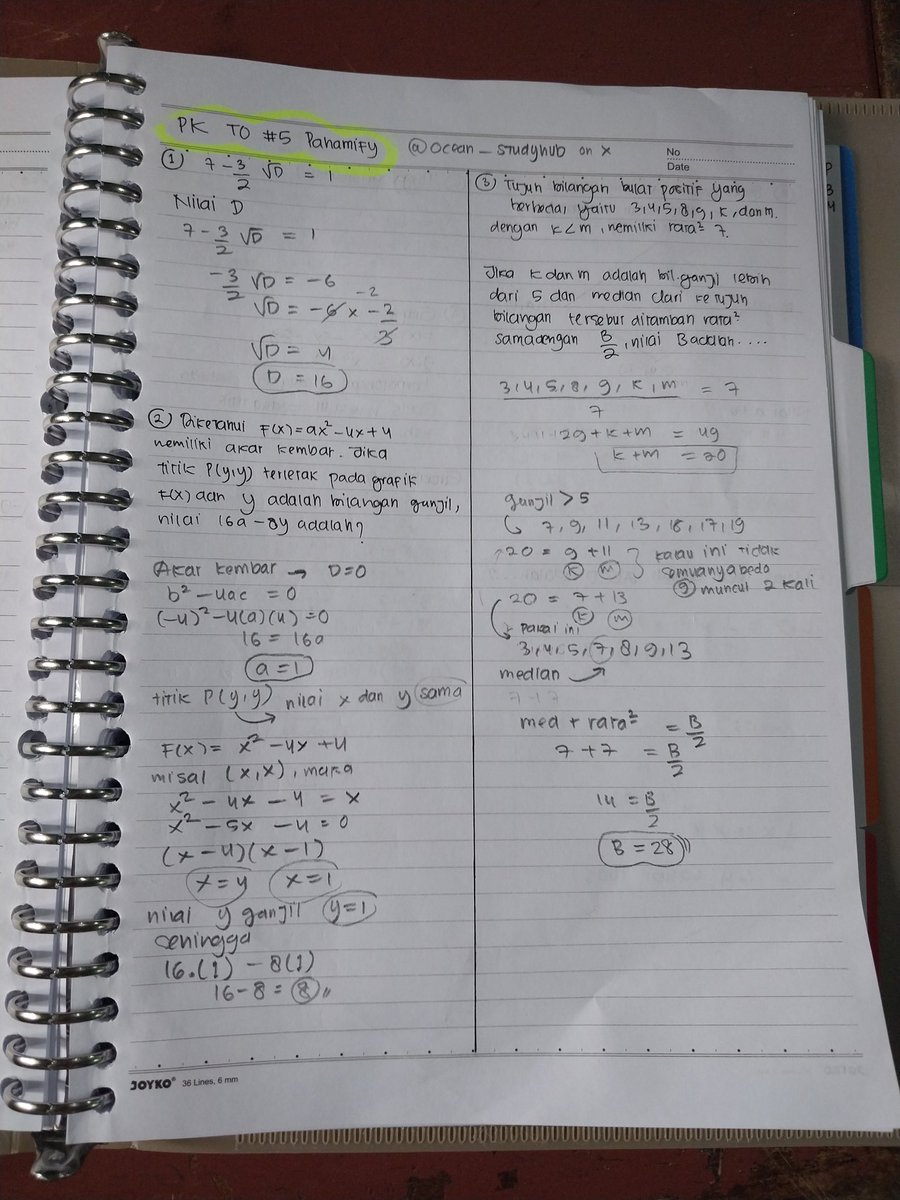 PK TO #5 Pahamify
@ocean_studyhub on X
No
Date
① 7 - 3/2 √D = 1
Nilai D
7 - 3/2 √D = 1
-3/2 √D = -6
√D = -6 x -2/3
-2
√D = 4
D = 16
② Diketahui F(x) = ax² - 4x + 4
memiliki akar kembar. Jika
titik P(y,y) terletak pada grafik
F(x) dan y adalah bilangan ganjil,
nilai 16a - 8y adalah?
Akar kembar → D=0
b² - 4ac = 0
(-4)² - 4(a)(4) = 0
16 = 16a
a = 1
titik P(y,y) nilai x dan y sama
F(x) = x² - 4x + 4
misal (x,x), maka
x² - 4x - 4 = x
x² - 5x - 4 = 0
(x - 4)(x - 1)
x = 4 x = 1
nilai y ganjil y = 1
sehingga
16.(1) - 8(1)
16 - 8 = 8 //
③ Tujuh bilangan bulat positif yang
berbeda, yaitu 3,4,5,8,9,k, dan m.
dengan k<m, memiliki rara² 7.
Jika k dan m adalah bil. ganjil lebih
dari 5 dan median dari ketujuh
bilangan tersebut ditambah rata²
sama dengan B/2, nilai B adalah....
3,4,5,8,9,k,m / 7 = 7
29 + k + m = 49
k + m = 20
ganjil > 5
↳ 7, 9, 11, 13, 15, 17, 19
20 = 9 + 11 } kalau ini tidak
k m semuanya beda
⑨ muncul 2 kali
20 = 7 + 13
k m
↳ pakai ini
3,4,5,7,8,9,13
median
med + rata² = B/2
7 + 7 = B/2
14 = B/2
B = 28 //
JOYKO® 36 Lines, 6 mm